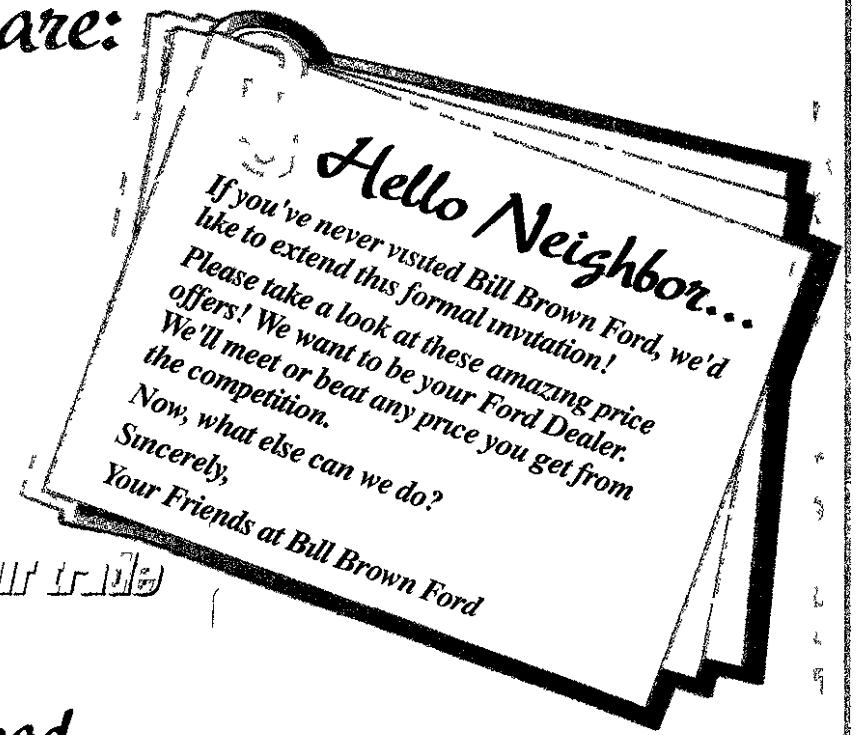 are:
Hello Neighbor...
If you've never visited Bill Brown Ford, we'd
like to extend this formal invitation!
Please take a look at these amazing price
offers! We want to be your Ford Dealer.
We'll meet or beat any price you get from
the competition.
Now, what else can we do?
Sincerely,
Your Friends at Bill Brown Ford
trade